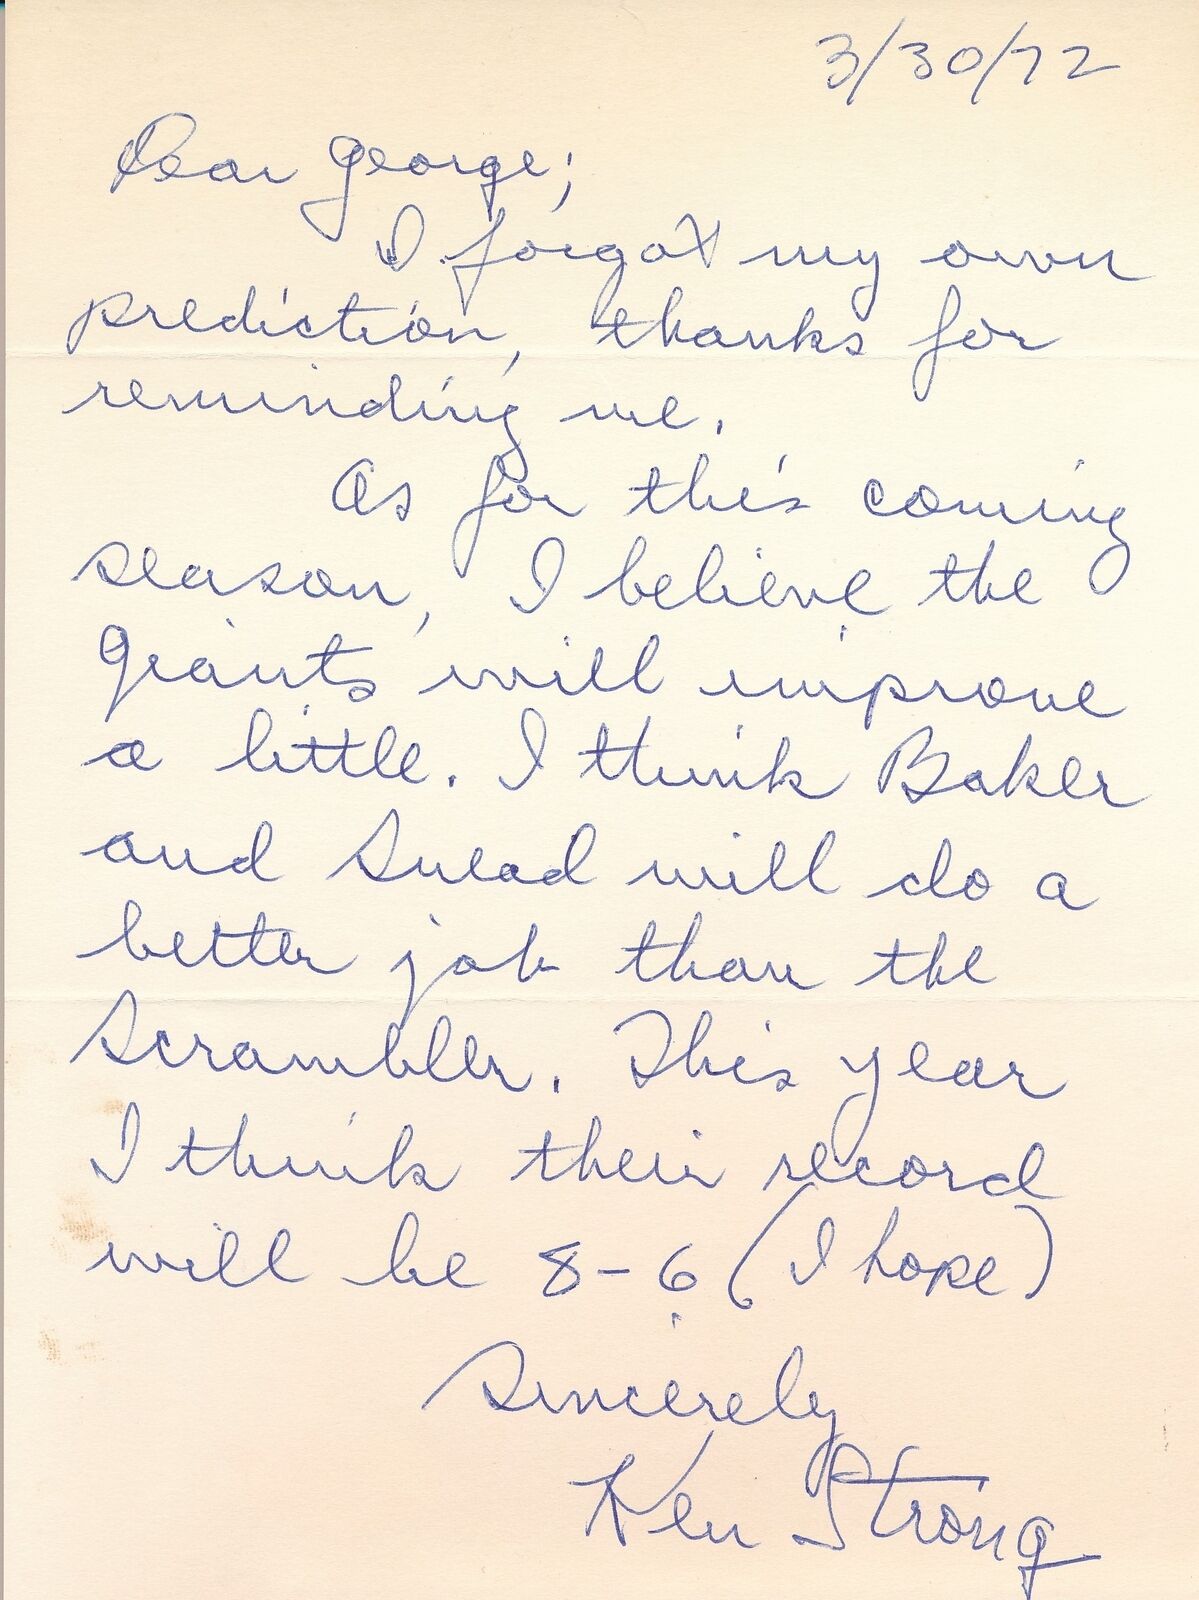 3/30/72
Dear George;
I forgot my own
prediction, thanks for
reminding me.
As for this coming
season, I believe the
Giants will improve
a little. I think Baker
and Snead will do a
better job than the
Scrambler. This year
I think their record
will be 8-6 (I hope)
Sincerely
Ken Strong